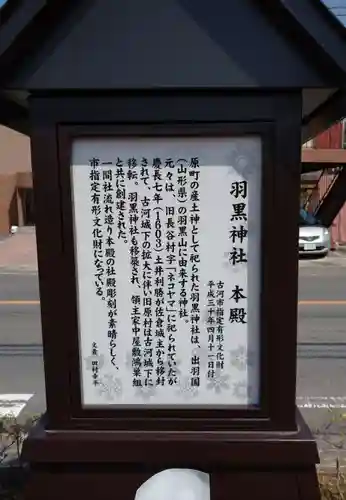 羽黒神社 本殿
古河市指定有形文化財
平成三十年四月十一日付
原町の産土神として祀られた羽黒神社は、出羽国
(山形県)の羽黒山に由来する神社。
元々は、旧長谷村字「ネコヤマ」に祀られていたが
慶長七年(1603)土井利勝が佐倉城主から移封
されて、古河城下の拡大に伴い旧原村は古河城下に
移転。羽黒神社も移築され、領主家中屋敷鴻巣組
と共に創建された。
一間社流れ造り本殿の社殿彫刻が素晴らしく、
市指定有形文化財になっている。
文責 田村幸平